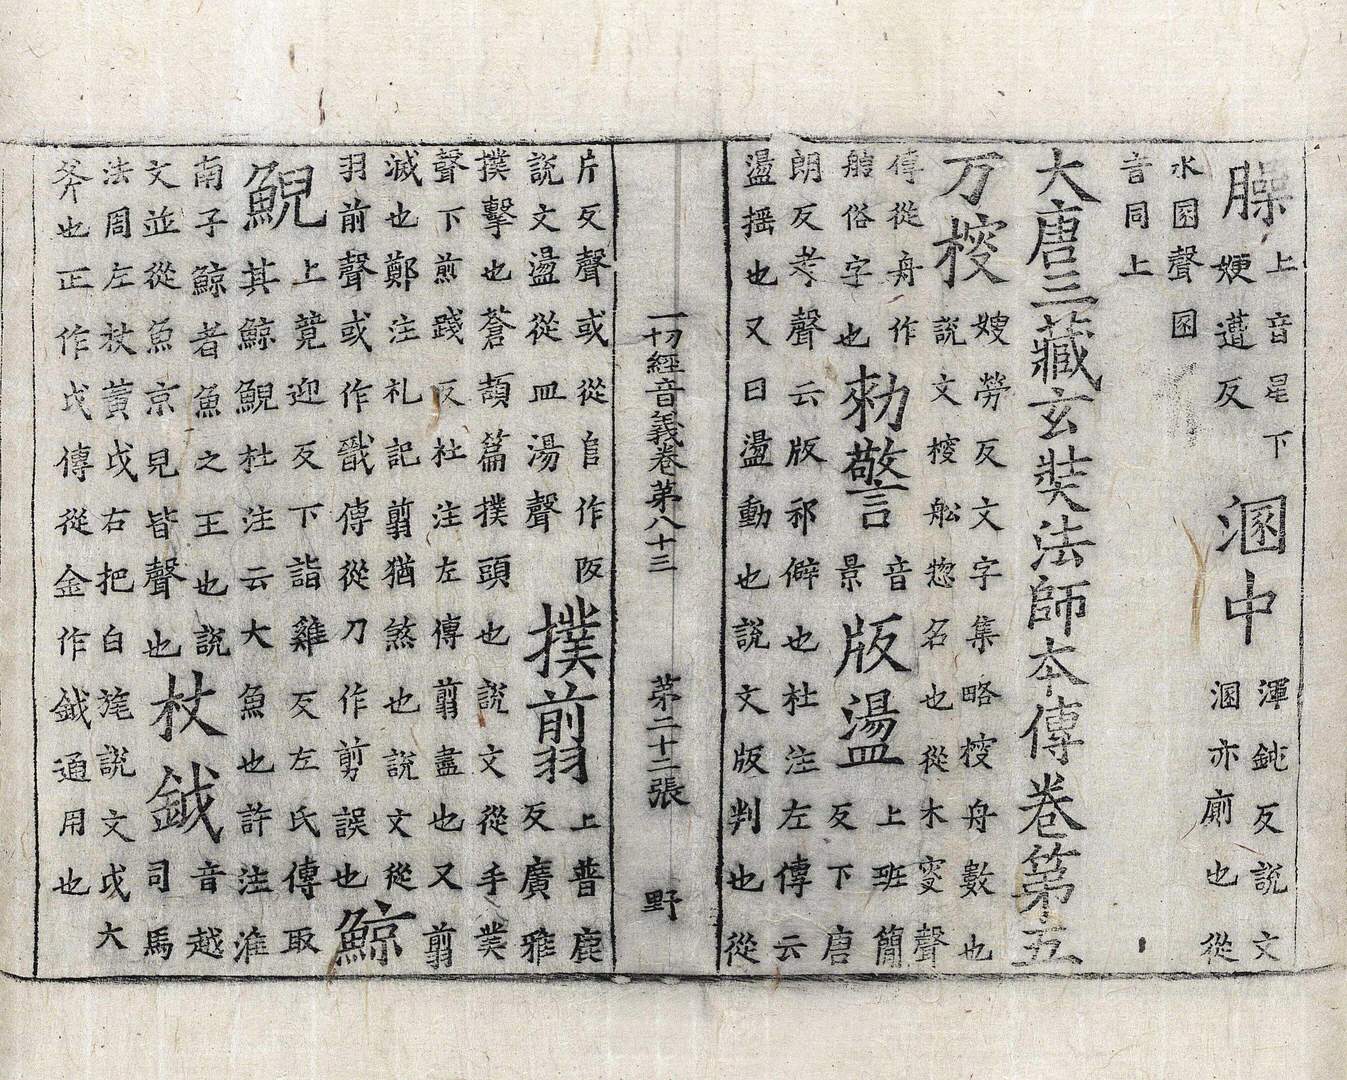 臊上音星下㛐遭反溷中渾鈍反說文溷亦廁也從
水圂聲圂音同上
大唐三藏玄奘法師本傳卷第五
万㮴嫂勞反文字集略㮴舟數也說文㮴船惣名也從木叜聲
傳從舟作艘俗字也勑警音景版盪上班簡反下唐
朗反考聲云版邪僻也杜注左傳云盪搖也又曰盪動也說文版判也從
一切經音義卷第八十三 第二十二張 野
片反聲或從𨸏作阪說文盪從皿湯聲撲翦上普鹿反廣雅
撲擊也蒼頡篇撲頭也說文從手菐聲下煎踐反杜注左傳翦盡也又翦
滅也鄭注礼記翦猶煞也說文從羽前聲或作戩傳從刀作剪誤也鯨
鯢上竟迎反下詣雞反左氏傳取其鯨鯢杜注云大魚也許注淮
南子鯨者魚之王也說文並從魚京皃皆聲也杖鉞音越司馬
法周左杖黃戉右把白旄說文戉大斧也正作戉傳從金作鉞通用也